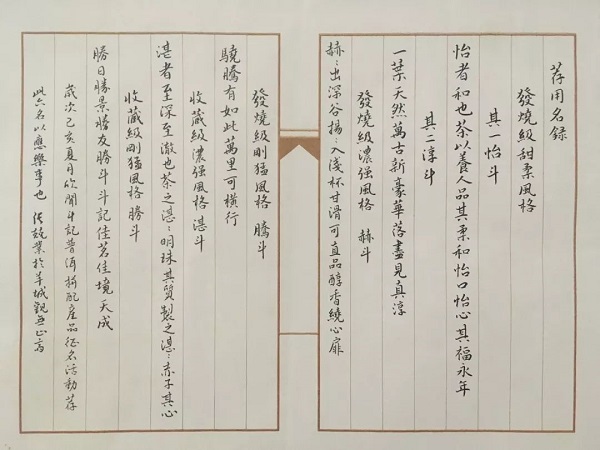 荐用名錄
發燒級甜柔風格
其一怡斗
怡者和也茶以養人品其柔和怡口怡心其福永年
其二淳斗
一葉天然萬古新豪華落盡見真淳
發燒級濃强風格 赫斗
赫:出深谷揚:入淺杯甘滑可直品醇香繞心扉
發燒級剛猛風格 騰斗
驍騰有如此萬里可横行
收藏級濃强風格 湛斗
湛者至深至澈也茶之湛:明珠其質製之湛:赤子其心
收藏級剛猛風格 勝斗
勝日勝景勝友勝斗斗記佳茗佳境天成
歲次己亥夏月欣聞斗記普洱拼配產品征名活動荐
此六名以應樂事也 業於羊城觀無止